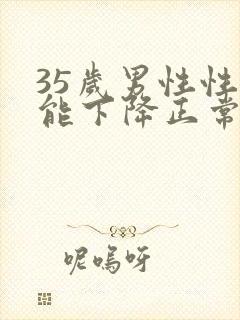 35歲男性性
能下降正常
呢嗚呀